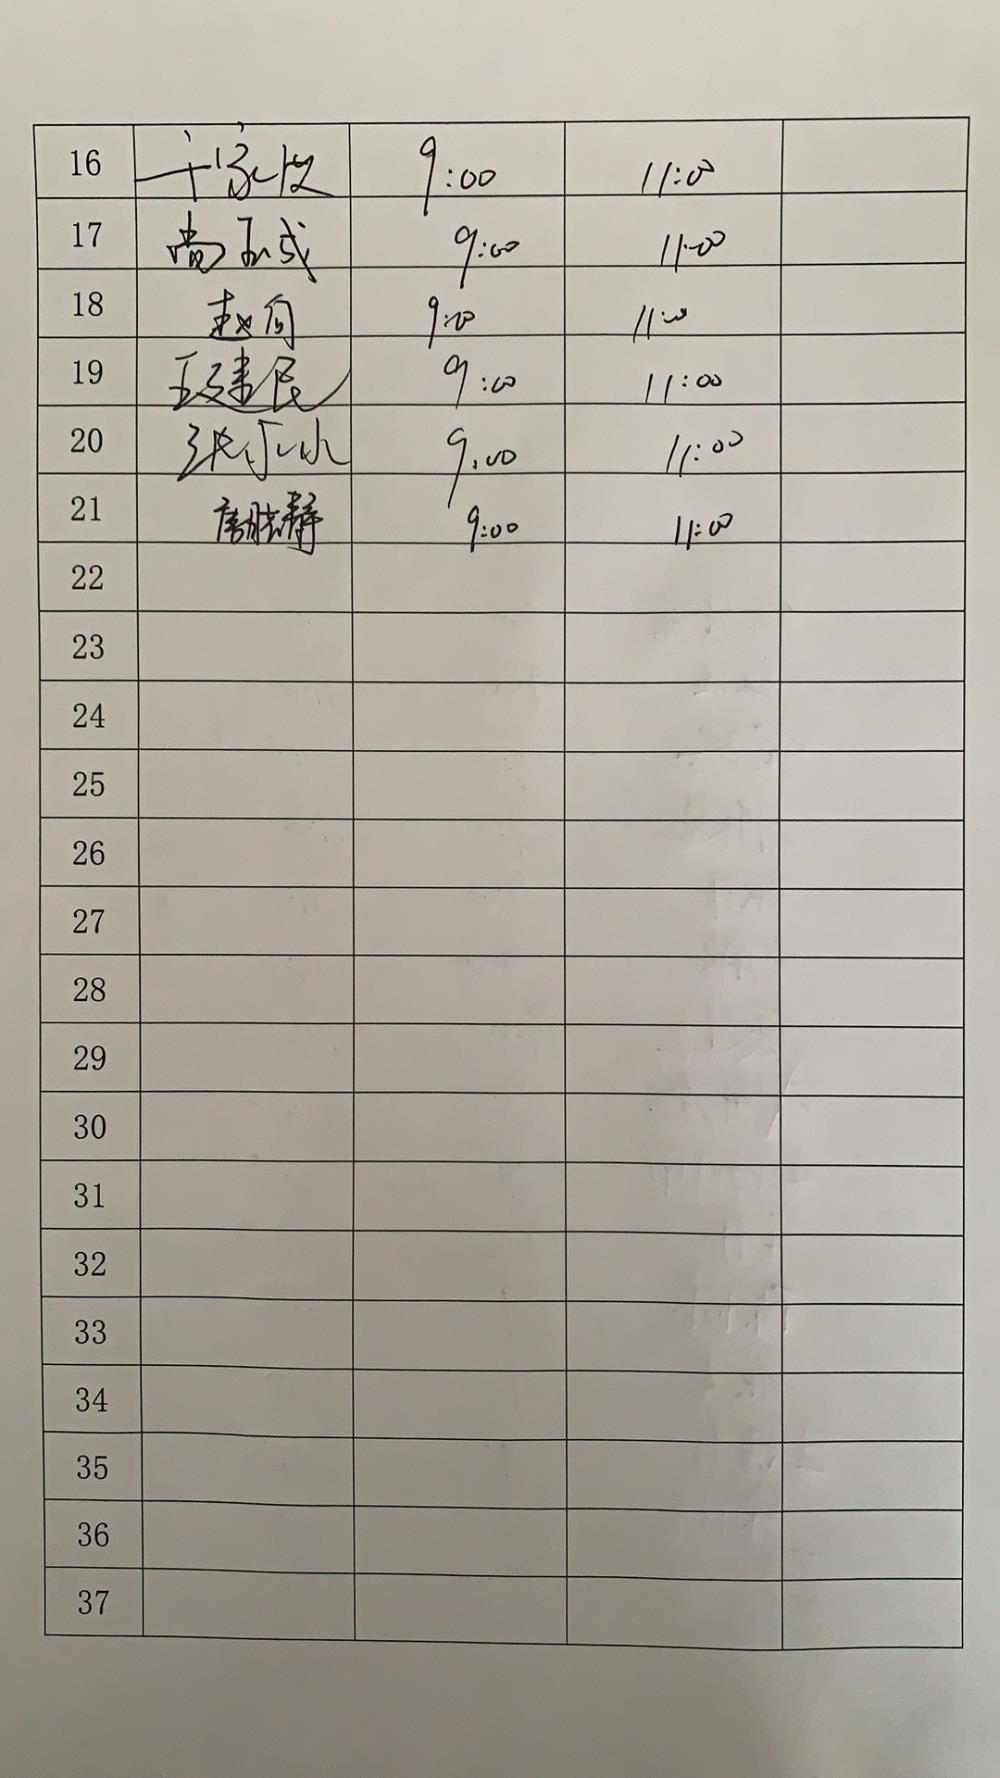 16 9:00 11:00
17 9:00 11:00
18 赵向 9:00 11:00
19 王建民 9:00 11:00
20 9:00 11:00
21 唐晓静 9:00 11:00
22
23
24
25
26
27
28
29
30
31
32
33
34
35
36
37